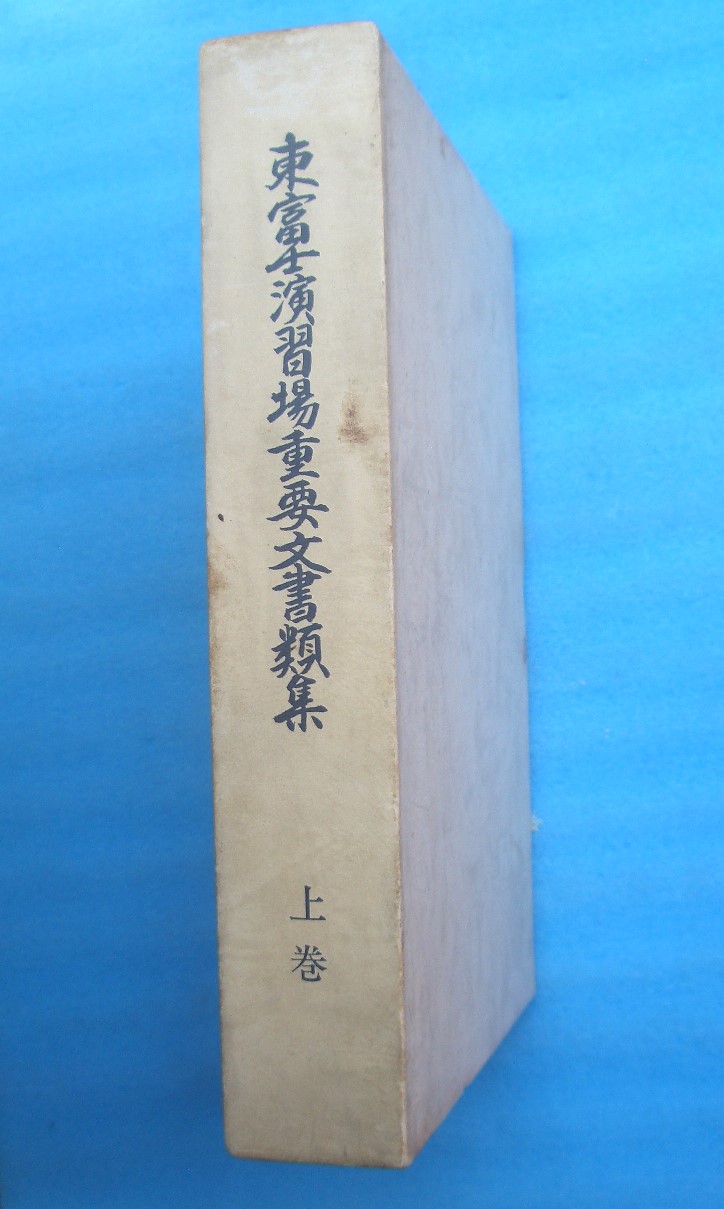 東富士演習場重要文書類集
上巻